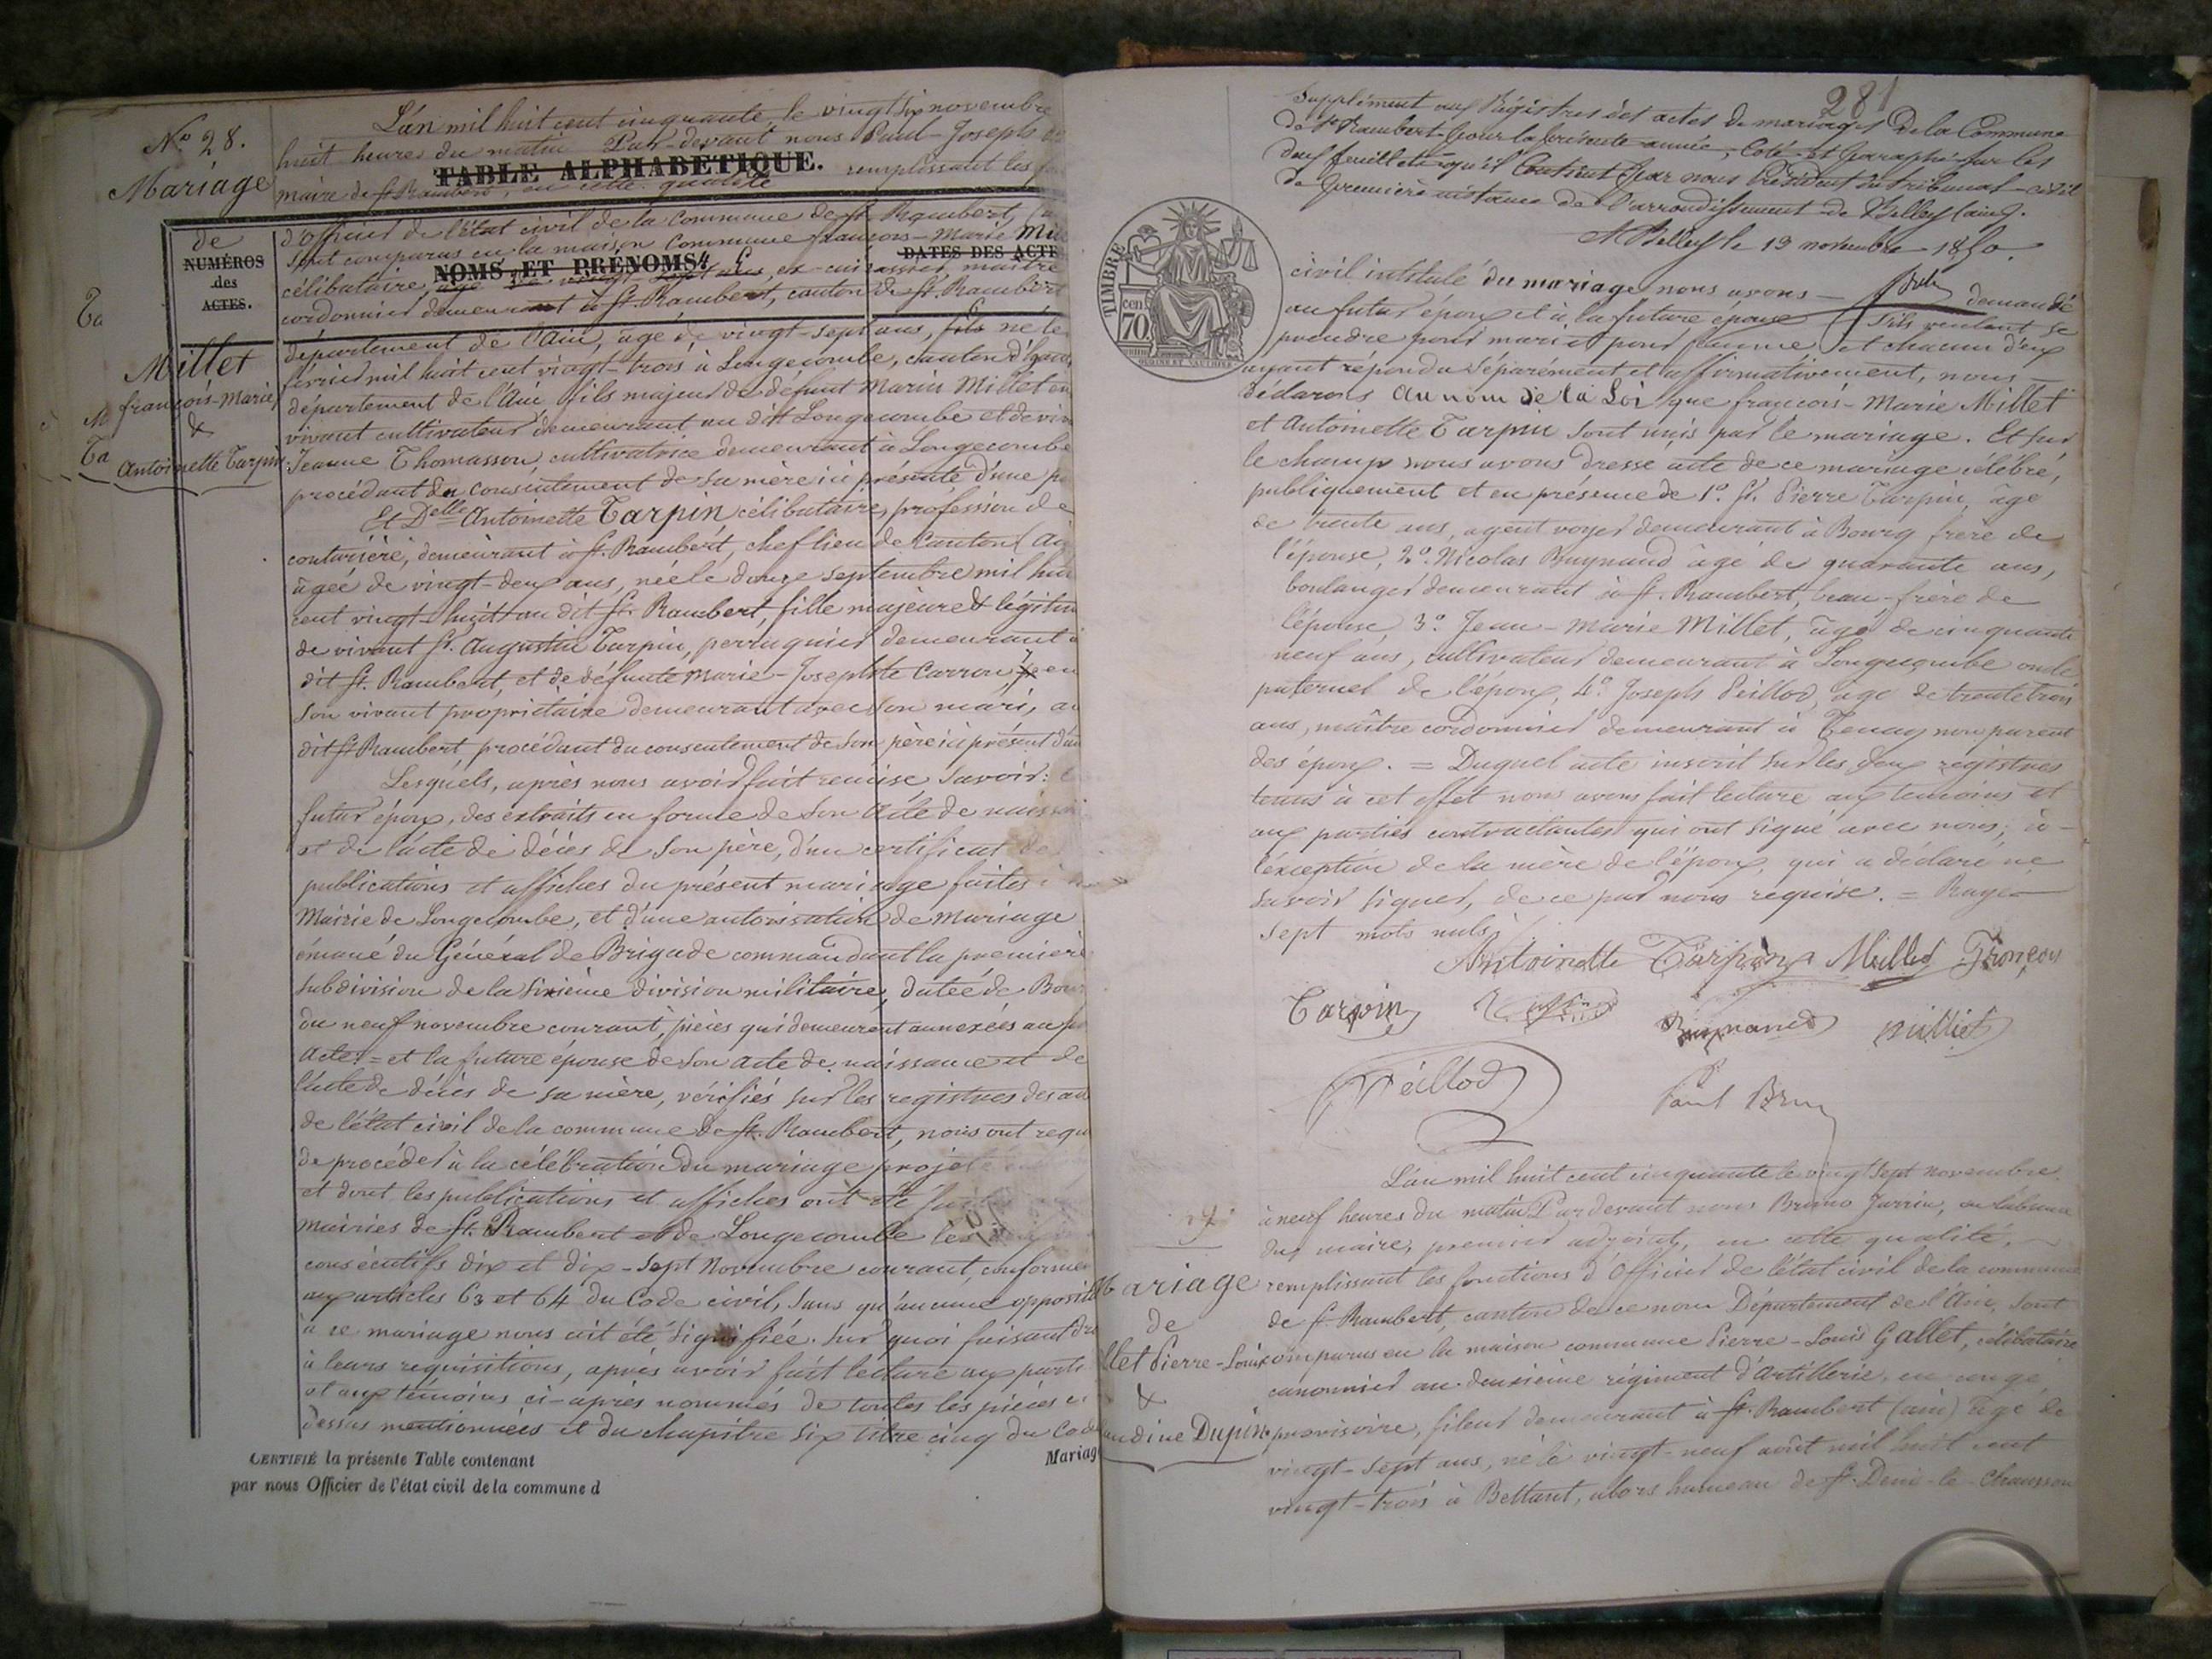 No 28.
Mariage
de
Millet
françois-Marie,
&
Antoinette Tarpin
Ta
M
Ta
L'an mil huit cent cinquante, le vingt six novembre
huit heures du matin Par-devant nous Paul-Joseph
TABLE ALPHABÉTIQUE.
maire de St Rambert, en cette qualité remplissant les
d'officier de l'état civil de la Commune de St. Rambert,
sont comparus en la maison Commune françois-Marie
NUMÉROS
des
ACTES.
NOMS ET PRÉNOMS
DATES DES ACTE
célibataire, ex-cuirassier, maître
cordonnier demeurant à St. Rambert, canton de St. Rambert
département de l'Ain, âgé de vingt-sept ans, fils né le
février mil huit cent vingt-trois à Longecombe, canton d'
département de l'Ain fils majeur de défunt Marin Millet en
vivant cultivateur demeurant au dit Longecombe et de
Jeanne Thomasson, cultivatrice demeurant à Longecombe
procédant du consentement de sa mère ici présente d'une
Et Delle Antoinette Tarpin, célibataire, profession de
couturière, demeurant à St. Rambert, chef lieu de Canton
âgée de vingt-deux ans, née le douze septembre mil
cent vingt-huit au dit St. Rambert, fille majeure & légitim
de vivant Sr. Augustin Tarpin, perruquier demeurant
dit St. Rambert, et de défunte Marie-Josephte Carron en
son vivant propriétaire demeurant avec son mari, au
dit St Rambert procédant du consentement de son père ici présent
Lesquels, après nous avoir fait remise, savoir:
futur époux, des extraits en forme de son acte de
et de l'acte de décès de son père, d'un certificat de
publications et affiches du présent mariage faites
Mairie de Longecombe, et d'une autorisation de Mariage
émané du Général de Brigade commandant la première
subdivision de la sixième division militaire, datée de
du neuf novembre courant, pièces qui demeurent annexées au
actes = et la future épouse de son acte de naissance et de
l'acte de décès de sa mère, vérifiés sur les registres des
de l'état civil de la commune de St. Rambert, nous ont
de procéder à la célébration du mariage projeté
et dont les publications et affiches ont été
mairies de St. Rambert et de Longecombe les
consécutifs dix et dix-sept Novembre courant,
aux articles 63 et 64 du Code civil, sans qu'aucune
à ce mariage nous ait été signifiée. sur quoi faisant
à leurs réquisitions, après avoir fait lecture aux
et aux témoins ci-après nommés de toutes les pièces
dessus mentionnées et du chapitre six titre cinq du Code
CERTIFIÉ la présente Table contenant
Mariag
par nous Officier de l'état civil de la commune d
281
Supplément aux Régistres des actes de mariages de la Commune
de St Rambert pour la présente année, Coté et paraphé sur les
deux feuillets qu'il Contient par nous Président du tribunal civil
de première instance de l'arrondissement de Belley (ain).
A Belley le 19 novembre 1850.
TIMBRE
70
cen
civil intitulé du mariage nous avons demandé
au futur époux et à la future épouse s'ils veulent se
prendre pour mari et pour femme et chacun d'eux
ayant répondu séparément et affirmativement, nous
déclarons au nom de la Loi que françois-Marie Millet
et Antoinette Tarpin sont unis par le mariage. Et sur
le champ nous avons dressé acte de ce mariage célébré,
publiquement et en présence de 1o. Sr. Pierre Tarpin, âgé
de trente ans, agent voyer demeurant à Bourg frère de
l'épouse, 2o. Nicolas Ruynaud âgé de quarante ans,
boulanger demeurant à St. Rambert, beau-frère de
l'épouse, 3o. Jean-Marie Millet, âgé de cinquante
neuf ans, cultivateur demeurant à Longecombe oncle
paternel de l'époux, 4o. Joseph Peillod, âgé de trente trois
ans, maître cordonnier demeurant à Tenay non parent
des époux. = Duquel acte inscrit sur les deux registres
tenus à cet effet nous avons fait lecture aux témoins et
aux parties contractantes qui ont signé avec nous, à
l'exception de la mère de l'époux, qui a déclaré ne
savoir signer, de ce par nous requise. = Rayé
sept mots nuls.
Antoinette Tarpin Millet François
Tarpin
Ruynaud millet
Peillod Paul Brun
Mariage
de
llet Pierre-Louis
&
audine Dupin
L'an mil huit cent cinquante le vingt sept novembre
à neuf heures du matin Par devant nous Bruno Jarrin, en l'absence
du maire, premier adjoint, en cette qualité,
remplissant les fonctions d'Officier de l'état civil de la commune
de St Rambert, canton de ce nom Département de l'Ain, sont
comparus en la maison commune Pierre-Louis Gallet, célibataire
canonnier au deuxième régiment d'Artillerie, en congé
provisoire, fileur demeurant à St. Rambert (ain) âgé de
vingt-sept ans, né le vingt-neuf août mil huit cent
vingt-trois à Bettant, alors hameau de St. Denis-le-Chausson